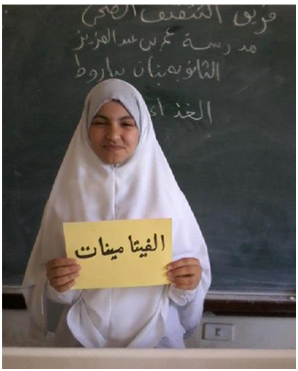 فريق التثقيف الصحي
مدرسة عمر بن عبد العزيز
الثانوية بنات
الغذاء
الفيتامينات